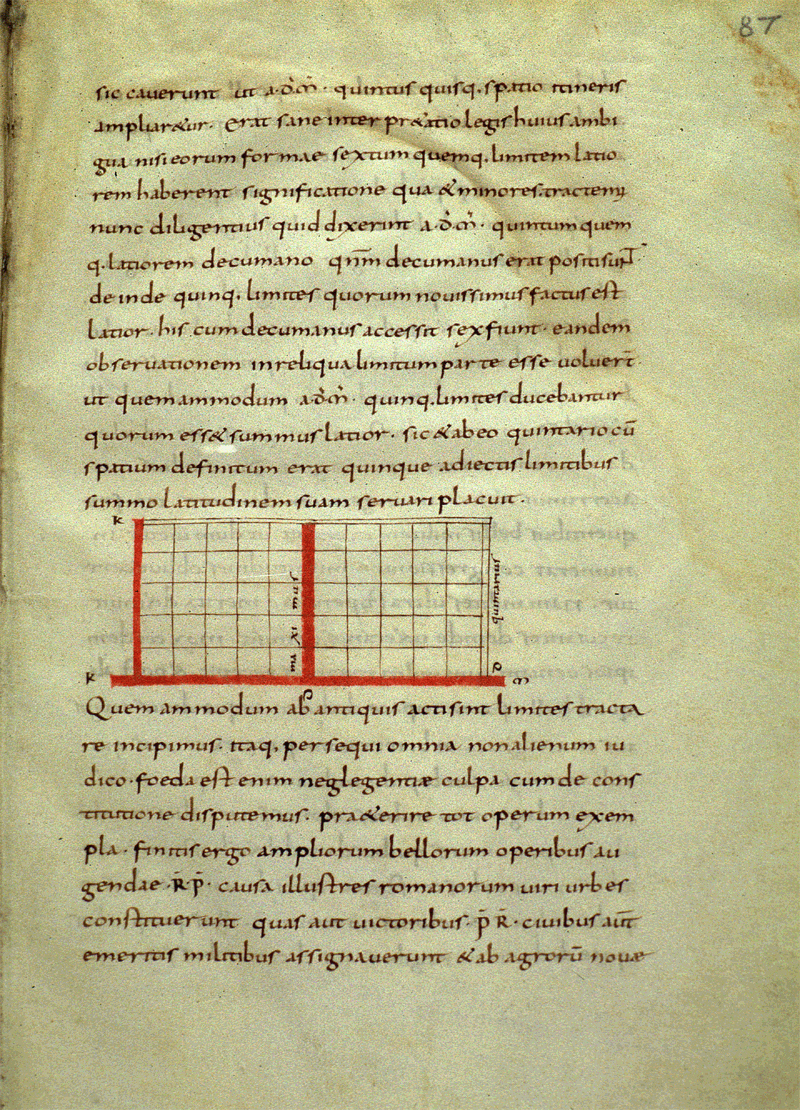 87
sic cauerunt ut a·d·m̄· quintus quisq. spatio itineris
ampliar&ur. erat sane interpr&atio legis huius ambi
gua nisi eorum formae sextum quemq. limitem latio
rem haberent significatione qua &minores. tractemꝰ
nunc diligentius quid dixerint a·d·m̄· quintum quem
q. latiorem decumano qnm̄ decumanus erat positus
deinde quinq. limites quorum nouissimus factus est
latior. his cum decumanus accessit sex fiunt. eandem
obseruationem in reliqua limitum parte esse uoluer̄t
ut quemammodum a·d·m̄· quinq. limites ducebantur
quorum ess& summus latior. sic &ab eo quintario cū
spatium definitum erat quinque adiectis limitibus
summo latitudinem suam seruari placuit.
k
maximus
quintarius
k
p
m
p
Quemammodum ab antiquis acti sint limites tracta
re incipimus. itaq, persequi omnia non alienum iu
dico. foeda est enim neglegentiæ culpa cum de cons
titutione disputemus. pra&erire tot operum exem
pla. finitis ergo ampliorum bellorum operibus au
gendae ·R̄·P̄· causa illustres romanorum uiri urbes
constituerunt quas aut uictoribus· p̄ R̄· ciuibus aut̄
emeritis militibus assignauerunt &ab agrorū nouæ